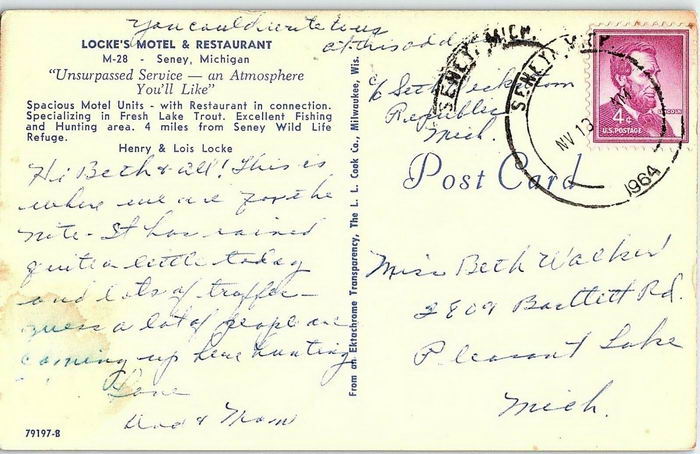 You could write to us
at this address
LOCKE'S MOTEL & RESTAURANT
M-28 - Seney, Michigan
"Unsurpassed Service — an Atmosphere
You'll Like"
Spacious Motel Units - with Restaurant in connection.
Specializing in Fresh Lake Trout. Excellent Fishing
and Hunting area. 4 miles from Seney Wild Life
Refuge.
Henry & Lois Locke
Hi Beth & all! This is
where we are for the
nite - It has rained
quite a little today
and lots of traffic -
guess a lot of people are
coming up here hunting
Love
Dad & Mom
79197-B
From an Ektachrome Transparency, The L. L. Cook Co., Milwaukee, Wis.
c/o Seth
Republic
Mich.
SENEY, MICH.
SENEY, MICH.
NV 13
1964
LINCOLN
4¢
U.S. POSTAGE
Post Card
Miss Beth Walker
2809 Bartlett Rd.
Pleasant Lake
Mich.